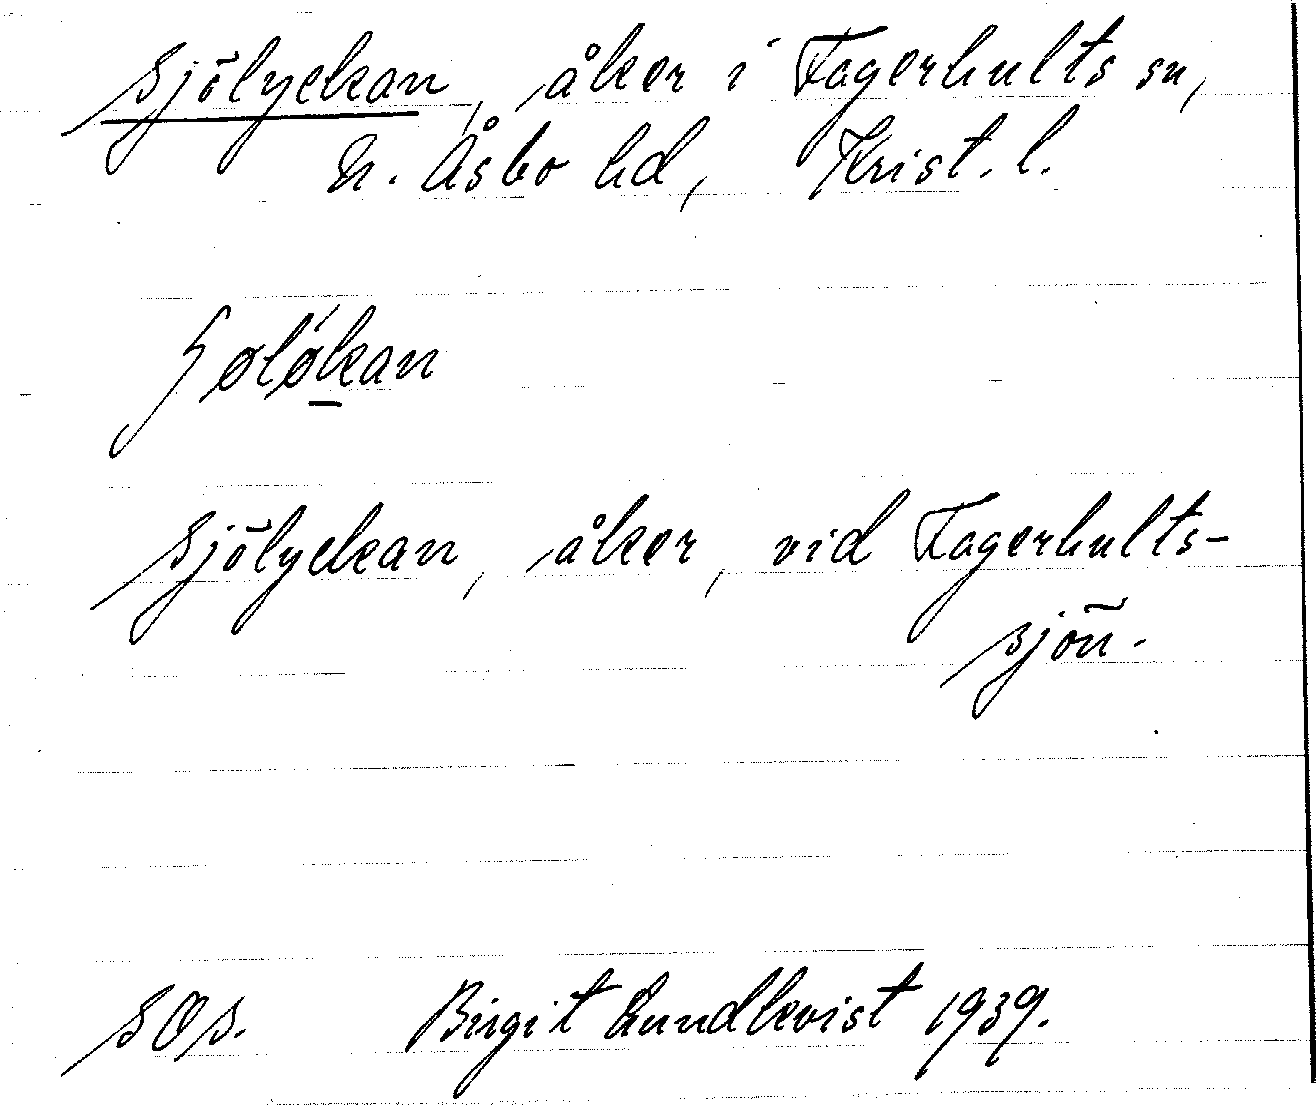 Sjölyckan, åker i Fagerhults sn,
N. Åsbo hd, Krist. l.
ʃølǿkan
Sjölyckan, åker, vid Fagerhults-
sjön.
SOs. Birgit Lundkvist 1939.